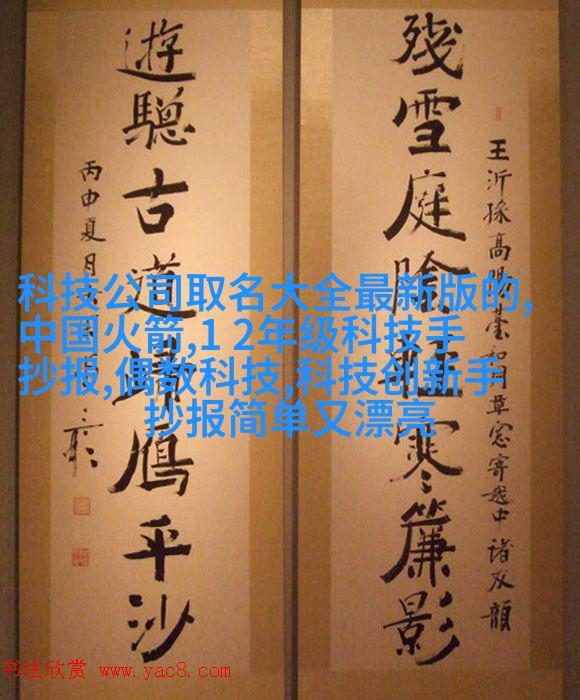 殘雪庭陰輕寒簾影
王沂孫高陽臺和周草窓寄越中諸友韻
遊驄古道歸鴈平沙
丙申夏月
科技公司取名大全最新版的,
中国火箭,1 2年级科技手
抄报,偶数科技,科技创新手
抄报简单又漂亮
书法欣赏 www.yac8.com